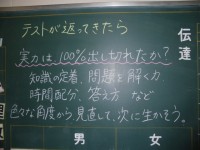 テストが返ってきたら
実力は、100%出し切れたか?
知識の定着、問題を解く力
時間配分、答え方 など
色々な角度から見直して、次に生かそう。
伝達
男 女